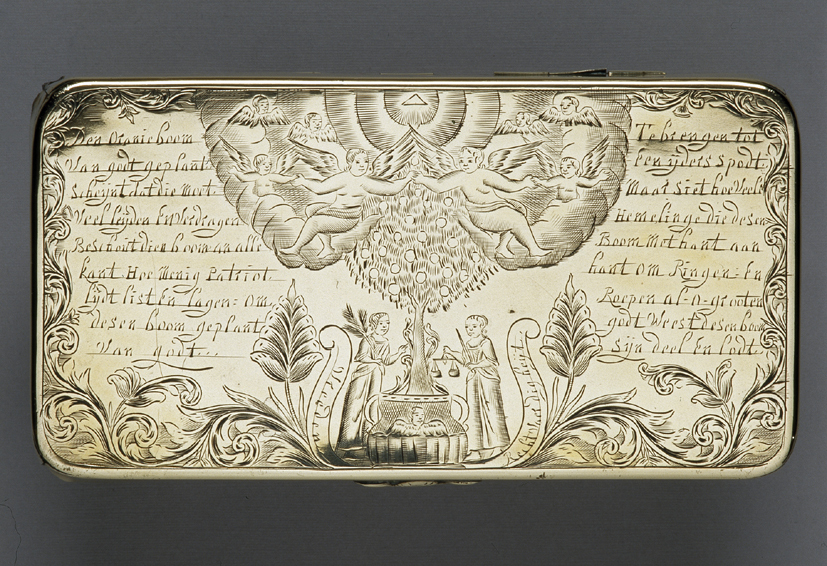 Den Oranieboom
Van godt geplant
Scheijnt dat die moet
Veel lyden En Verdragen
Beschout dien boom an alle
kant Hoe menig Patriot
Lydt list En lagen = om
desen boom geplant
Van godt..
Te brengen tot
een ijders spodt
Maar Siet hoe Veel
Hemelinge die desen
Boom Met hant aan
hant om Ringen = En
Roepen al = o = grooten
godt Weest desen boom
Sijn deel En lodt
Vreeden